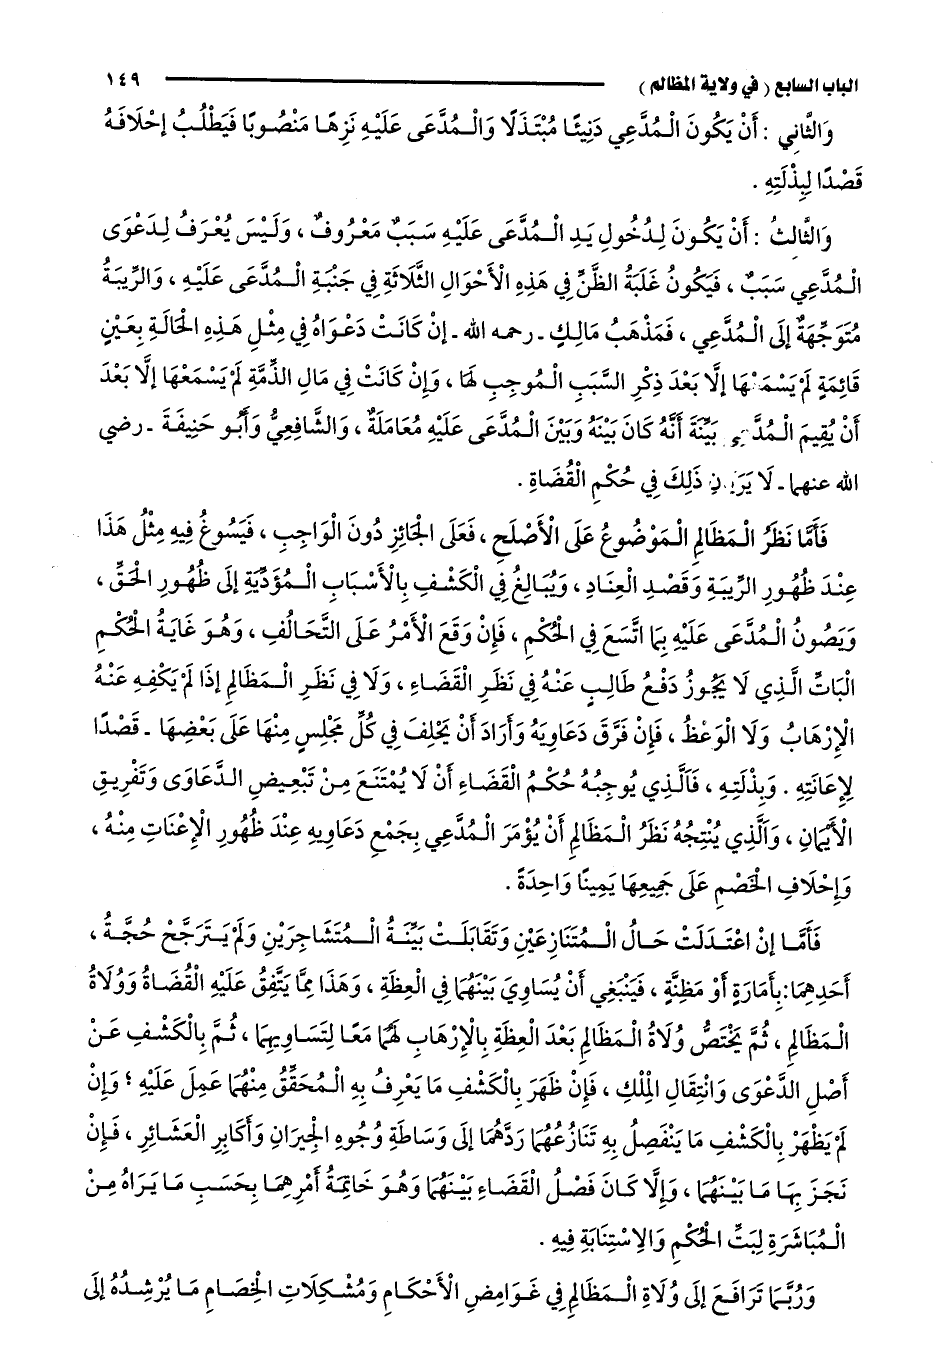 الباب السابع ( في ولاية المظالم ) ١٤٩
وَالثَّانِي : أَنْ يَكُونَ الْمُدَّعِي دَنِيئًا مُبْتَذَلًا وَالْمُدَّعَى عَلَيْهِ نَزِهًا مَنْصُوبًا فَيَطْلُبُ إحْلَافَهُ
قَصْدًا لِبِذْلَتِهِ .
وَالثَّالِثُ : أَنْ يَكُونَ لِدُخُولِ يَدِ الْمُدَّعَى عَلَيْهِ سَبَبٌ مَعْرُوفٌ ، وَلَيْسَ يُعْرَفُ لِدَعْوَى
الْمُدَّعِي سَبَبٌ ، فَيَكُونُ غَلَبَةُ الظَّنِّ فِي هَذِهِ الْأَحْوَالِ الثَّلَاثَةِ فِي جَنْبَةِ الْمُدَّعَى عَلَيْهِ ، وَالرِّيبَةُ
مُتَوَجِّهَةٌ إلَى الْمُدَّعِي ، فَمَذْهَبُ مَالِكٍ ـ رحمه الله ـ إنْ كَانَتْ دَعْوَاهُ فِي مِثْلِ هَذِهِ الْحَالَةِ بِعَيْنٍ
قَائِمَةٍ لَمْ يَسْمَعْهَا إلَّا بَعْدَ ذِكْرِ السَّبَبِ الْمُوجِبِ لَهَا ، وَإِنْ كَانَتْ فِي مَالِ الذِّمَّةِ لَمْ يَسْمَعْهَا إلَّا بَعْدَ
أَنْ يُقِيمَ الْمُدَّعِي بَيِّنَةَ أَنَّهُ كَانَ بَيْنَهُ وَبَيْنَ الْمُدَّعَى عَلَيْهِ مُعَامَلَةٌ ، وَالشَّافِعِيُّ وَأَبُو حَنِيفَةَ ـ رضي
الله عنهما ـ لَا يَرَيَانِ ذَلِكَ فِي حُكْمِ الْقُضَاةِ .
فَأَمَّا نَظَرُ الْمَظَالِمِ الْمَوْضُوعُ عَلَى الْأَصْلَحِ ، فَعَلَى الْجَائِزِ دُونَ الْوَاجِبِ ، فَيَسُوغُ فِيهِ مِثْلُ هَذَا
عِنْدَ ظُهُورِ الرِّيبَةِ وَقَصْدِ الْعِنَادِ ، وَيُبَالِغُ فِي الْكَشْفِ بِالْأَسْبَابِ الْمُؤَدِّيَةِ إلَى ظُهُورِ الْحَقِّ ،
وَيَصُونُ الْمُدَّعَى عَلَيْهِ بِمَا اتَّسَعَ فِي الْحُكْمِ ، فَإِنْ وَقَعَ الْأَمْرُ عَلَى التَّحَالُفِ ، وَهُوَ غَايَةُ الْحُكْمِ
الْبَاتِّ الَّذِي لَا يَجُوزُ دَفْعُ طَالِبٍ عَنْهُ فِي نَظَرِ الْقَضَاءِ ، وَلَا فِي نَظَرِ الْمَظَالِمِ إذَا لَمْ يَكْفِهِ عَنْهُ
الْإِرْهَابُ وَلَا الْوَعْظُ ، فَإِنْ فَرَّقَ دَعَاوِيَهُ وَأَرَادَ أَنْ يَحْلِفَ فِي كُلِّ مَجْلِسٍ مِنْهَا عَلَى بَعْضِهَا ـ قَصْدًا
لِإِعَانَتِهِ . وَبِذْلَتِهِ ، فَاَلَّذِي يُوجِبُهُ حُكْمُ الْقَضَاءِ أَنْ لَا يُمْتَنَعَ مِنْ تَبْعِيضِ الدَّعَاوَى وَتَفْرِيقِ
الْأَيْمَانِ ، وَاَلَّذِي يُنْتِجُهُ نَظَرُ الْمَظَالِمِ أَنْ يُؤْمَرَ الْمُدَّعِي بِجَمْعِ دَعَاوِيهِ عِنْدَ ظُهُورِ الْإِعْنَاتِ مِنْهُ ،
وَإِحْلَافِ الْخَصْمِ عَلَى جَمِيعِهَا يَمِينًا وَاحِدَةً .
فَأَمَّا إنْ اعْتَدَلَتْ حَالُ الْمُتَنَازِعَيْنِ وَتَقَابَلَتْ بَيِّنَةُ الْمُتَشَاجِرَيْنِ وَلَمْ يَتَرَجَّحْ حُجَّةُ ،
أَحَدِهِمَا: بِأَمَارَةٍ أَوْ مَظِنَّةٍ ، فَيَنْبَغِي أَنْ يُسَاوِيَ بَيْنَهُمَا فِي الْعِظَةِ ، وَهَذَا مِمَّا يَتَّفِقُ عَلَيْهِ الْقُضَاةُ وَوُلَاةُ
الْمَظَالِمِ ، ثُمَّ يَخْتَصُّ وُلَاةُ الْمَظَالِمِ بَعْدَ الْعِظَةِ بِالْإِرْهَابِ لَهُمَا مَعًا لِتَسَاوِيهِمَا ، ثُمَّ بِالْكَشْفِ عَنْ
أَصْلِ الدَّعْوَى وَانْتِقَالِ الْمِلْكِ ، فَإِنْ ظَهَرَ بِالْكَشْفِ مَا يَعْرِفُ بِهِ الْمُحَقِّقُ مِنْهُمَا عَمِلَ عَلَيْهِ ؛ وَإِنْ
لَمْ يَظْهَرْ بِالْكَشْفِ مَا يَنْفَصِلُ بِهِ تَنَازُعُهُمَا رَدَّهُمَا إلَى وَسَاطَةِ وُجُوهِ الْجِيرَانِ وَأَكَابِرِ الْعَشَائِرِ ، فَإِنْ
نَجَزَ بِهَا مَا بَيْنَهُمَا ، وَإِلَّا كَانَ فَصْلُ الْقَضَاءِ بَيْنَهُمَا وَهُوَ خَاتِمَةُ أَمْرِهِمَا بِحَسَبِ مَا يَرَاهُ مِنْ
الْمُبَاشَرَةِ لِبَتِّ الْحُكْمِ وَالِاسْتِنَابَةِ فِيهِ .
وَرُبَّمَا تَرَافَعَ إلَى وُلَاةِ الْمَظَالِمِ فِي غَوَامِضِ الْأَحْكَامِ وَمُشْكِلَاتِ الْخِصَامِ مَا يُرْشِدُهُ إلَى